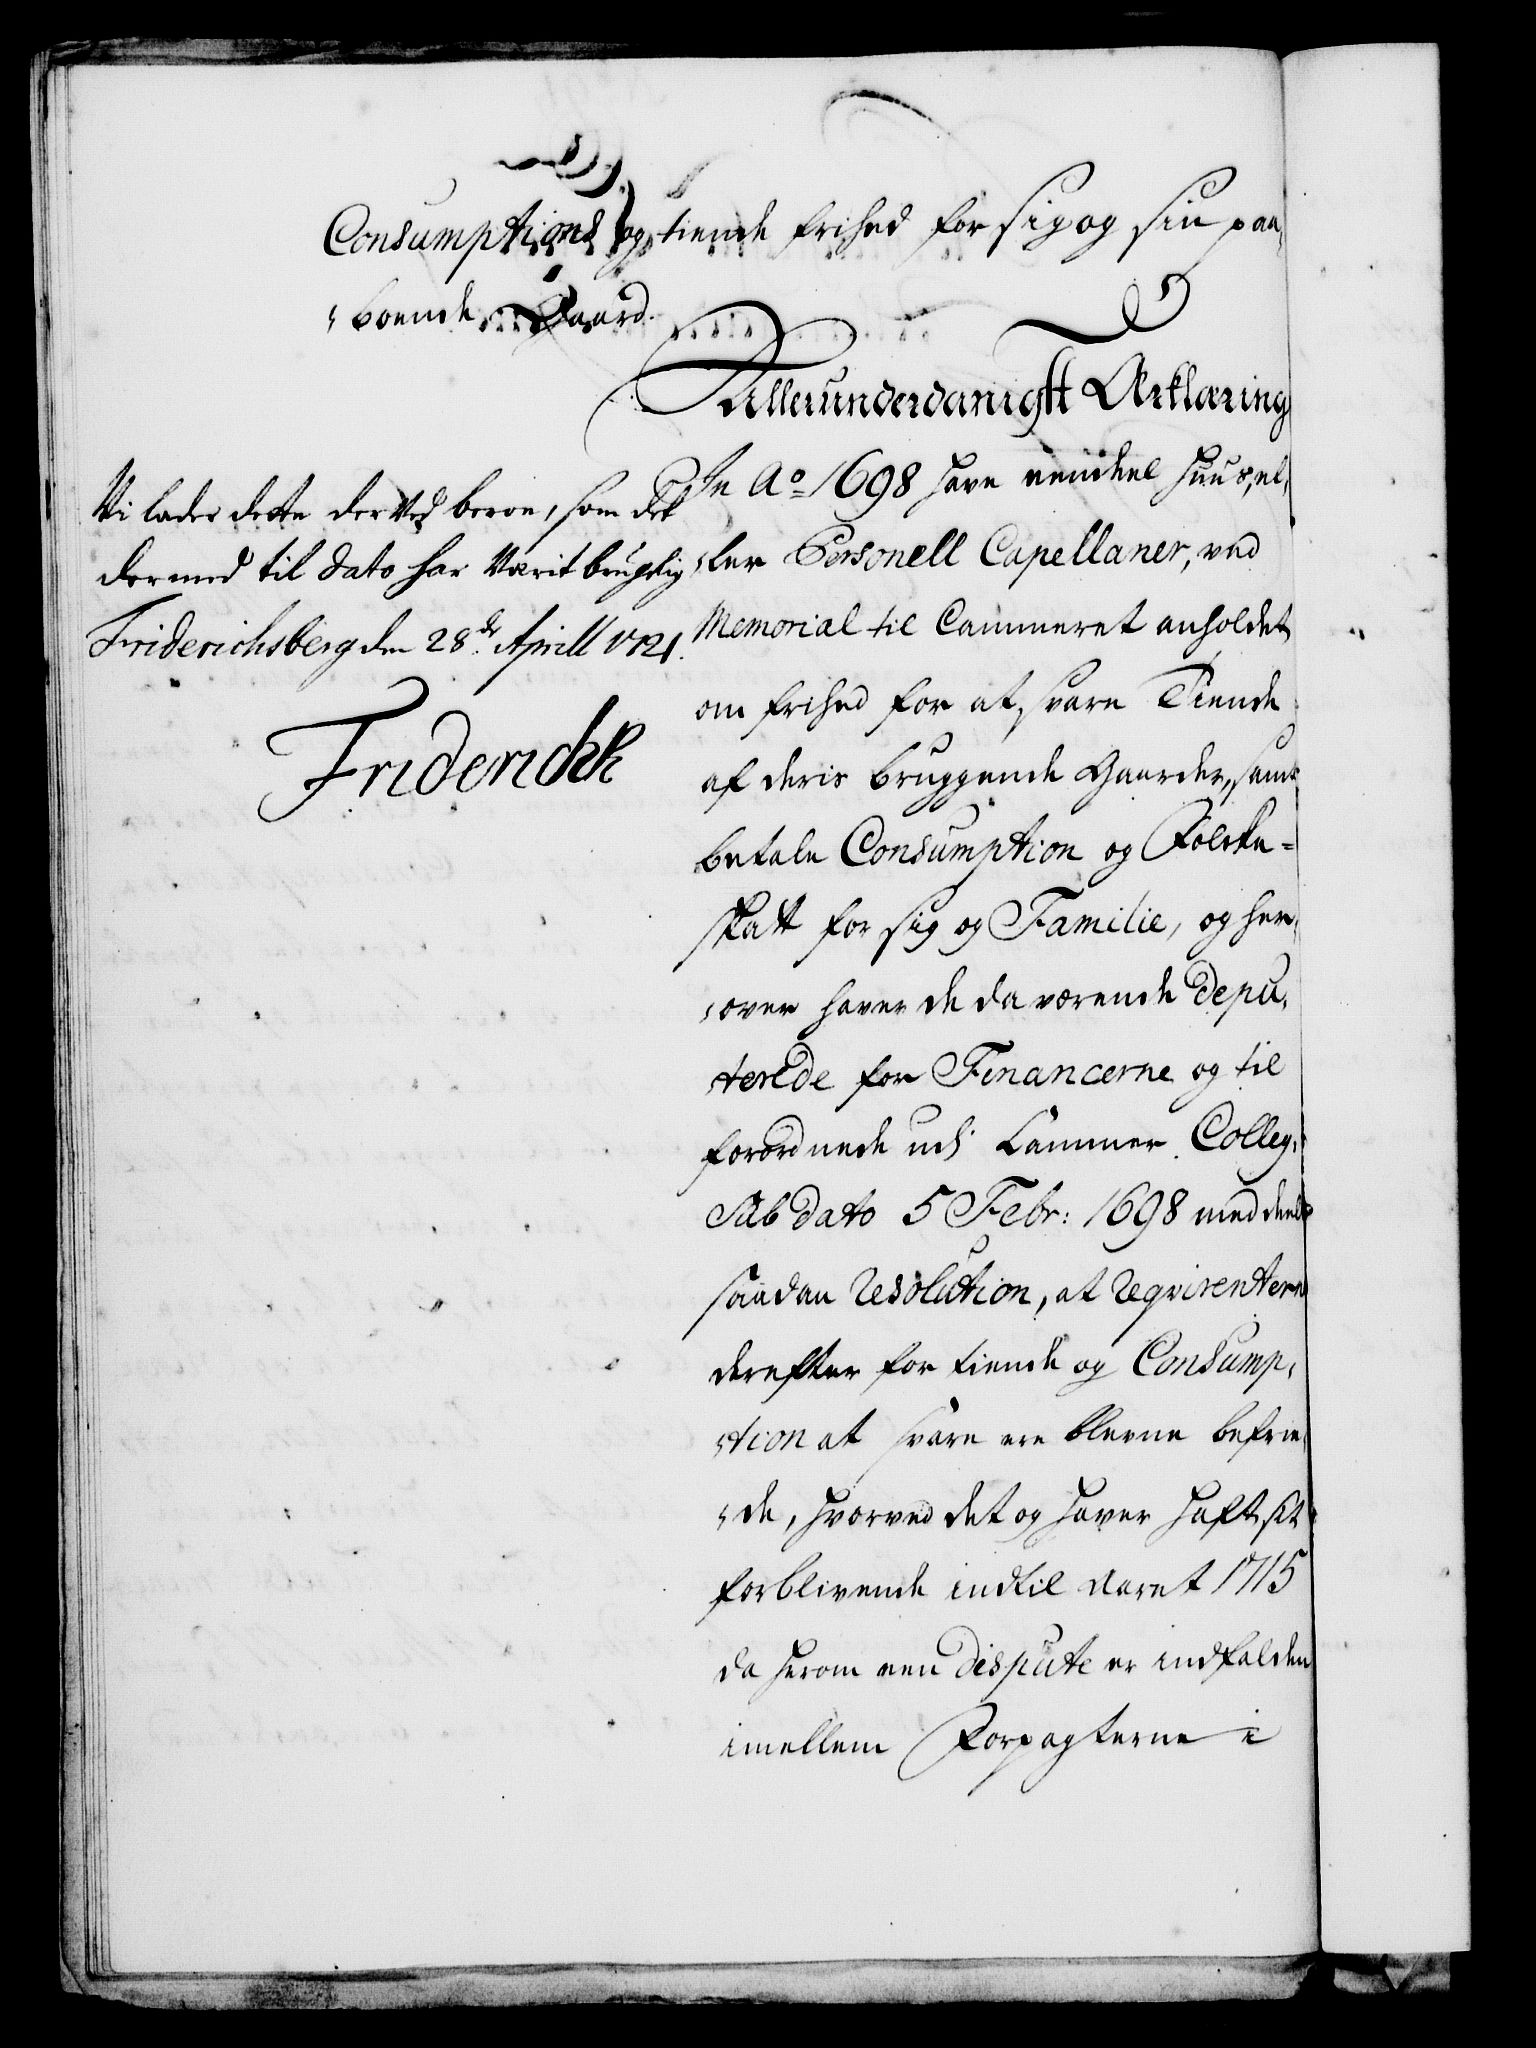 Consumptions og tiende frihed for sig og sin paa,
,boende Gaard.
Allerunderdanigst Erklæring
Vi lader dette derVed beroe, som det
dermed til dato har Værit brugelig
Friderichsberg den 28de Aprill 1721.
Friderich R
In Ao 1698 have eendeel Huus, el,
,ler Personell Capellaner, ved
Memorial til Cammeret anholdet
om frihed for at svare Tiende
af deris bruggende Gaarder, samt
betale Consumption og Folcke=
skatt for sig og Familie, og her,
,over haver de da værende Depu,
terede for Financerne og til
forordnede udj Cammer Colleg:
Sub dato 5 Febr: 1698 meddeelt
saadan Resolution, at Reqvirenterne
derefter for tiende og Consump,
,tion at svare ere blevne befrie,
,de, hvorved det og haver haft sit
forblivende indtil Aaret 1715
da herom een Dispute er indfalden
imellem Forpagterne i